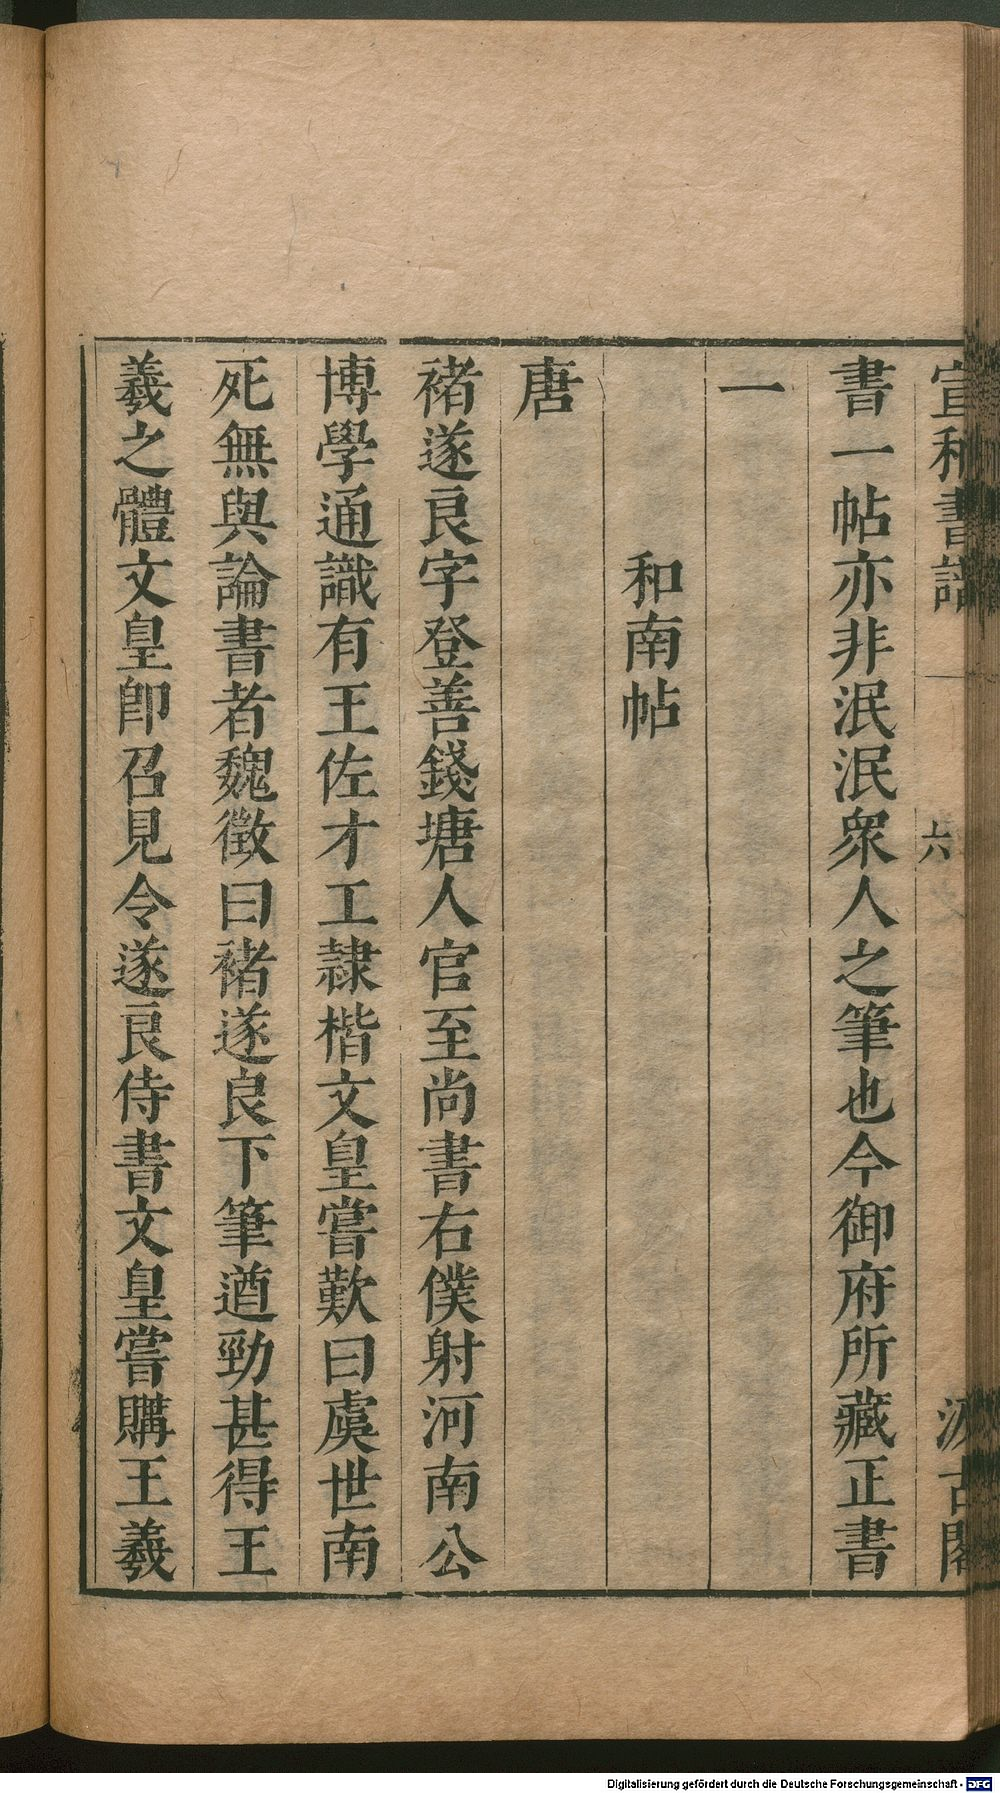 宣和書譜 六 汲古閣
書一帖亦非泯泯衆人之筆也今御府所藏正書
一
和南帖
唐
褚遂良字登善錢塘人官至尚書右僕射河南公
博學通識有王佐才工隷楷文皇嘗歎曰虞世南
死無與論書者魏徵曰褚遂良下筆遒勁甚得王
羲之體文皇卽召見令遂良侍書文皇嘗購王羲
Digitalisierung gefördert durch die Deutsche Forschungsgemeinschaft - DFG